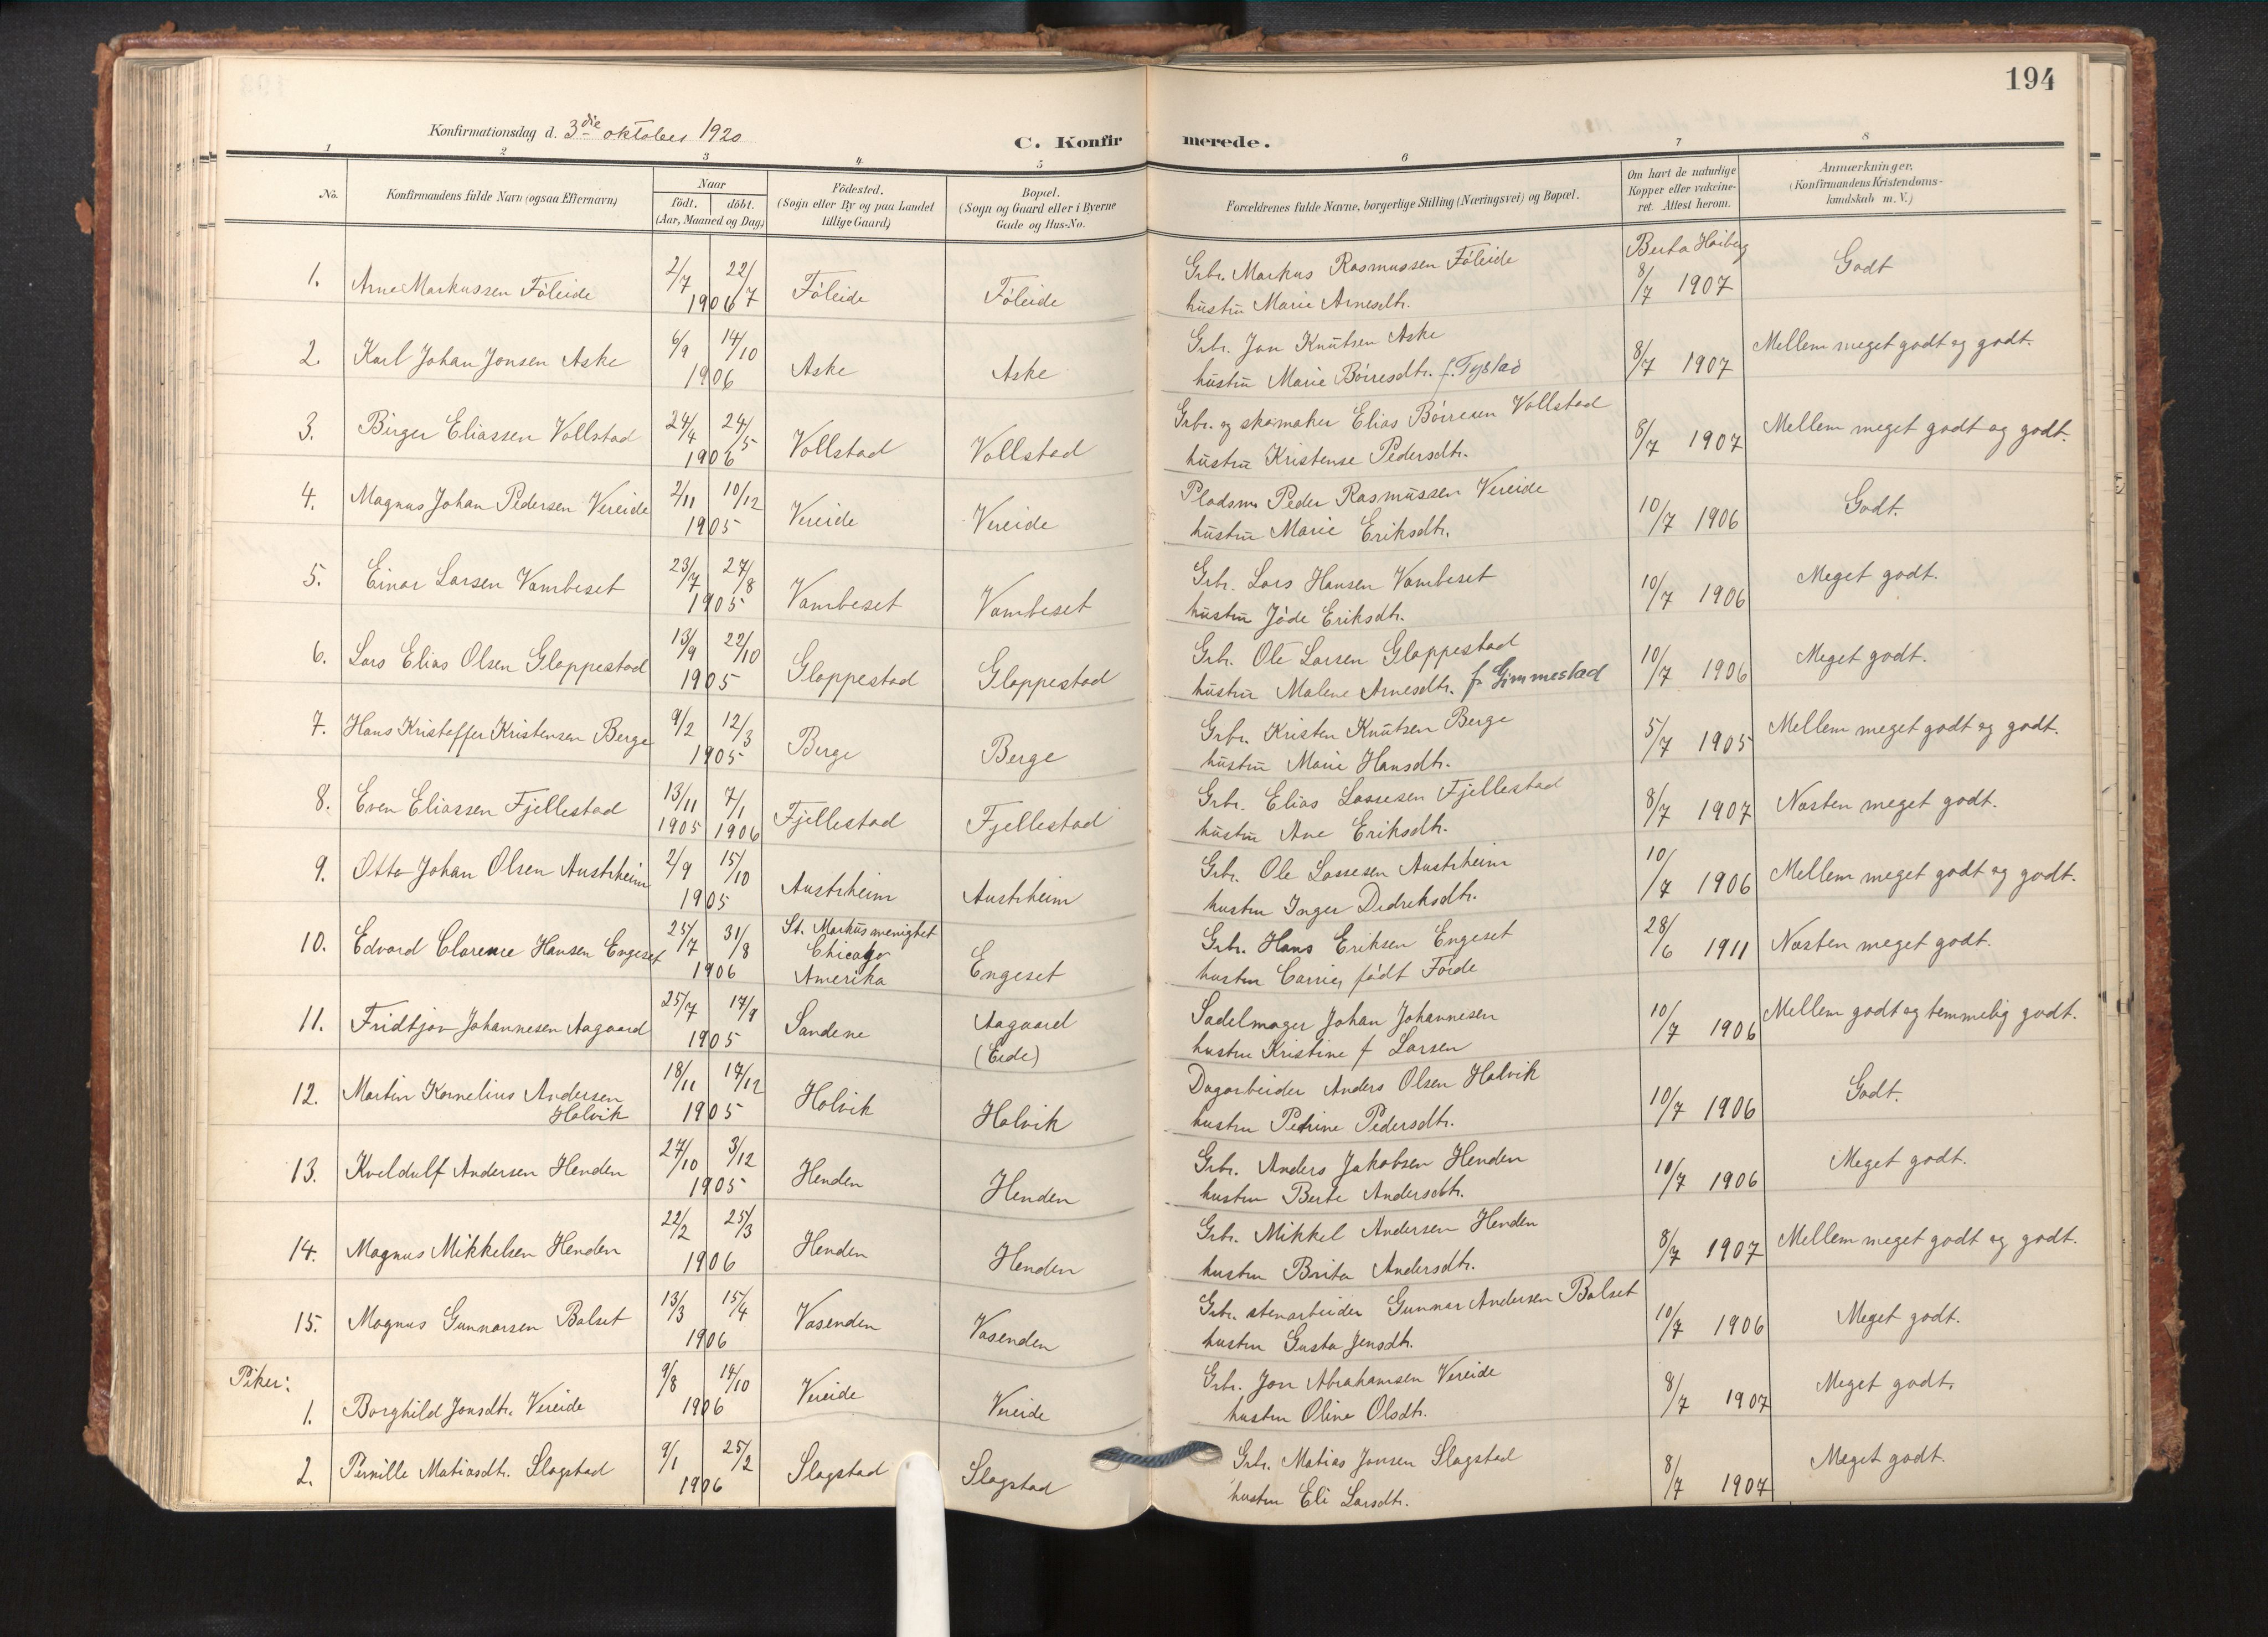 194
Konfirmationsdag d. 3die oktober 1920
C. Konfirmerede.
1 2 3 4 5 6 7 8
No.
Konfirmandens fulde Navn (ogsaa Efternavn)
Naar
födt. döbt.
(Aar, Maaned og Dag)
Födested.
(Sogn eller By og paa Landet
tillige Gaard)
Bopæl.
(Sogn og Gaard eller i Byerne
Gade og Hus-No.
Forældrenes fulde Navne, borgerlige Stilling (Næringsvei) og Bopæl.
Om havt de naturlige
Kopper eller vakcine-
ret. Attest herom.
Anmærkninger.
(Konfirmandens Kristendoms-
kundskab m. V.)
1. Arne Markussen Föleide 2/7 22/7 1906 Föleide Föleide Grbr. Markus Rasmussen Föleide Berta Hoiberg
hustru Marie Arnesdtr. 8/7 1907 Godt
2. Karl Johan Jonsen Aske 6/9 14/10 1906 Aske Aske Grbr. Jon Knutsen Aske
hustru Marie Börresdtr. f. Tystad 8/7 1907 Mellem meget godt og godt.
3. Birger Eliassen Vollstad 24/4 24/5 1906 Vollstad Vollstad Grbr. og skomaker Elias Börresen Vollstad
hustru Kristense Pedersdtr. 8/7 1907 Mellem meget godt og godt.
4. Magnus Johan Pedersen Vereide 2/11 10/12 1905 Vereide Vereide Pladsm. Peder Rasmussen Vereide
hustru Marie Eriksdtr. 10/7 1906 Godt.
5. Einar Larsen Vambeset 23/7 27/8 1905 Vambeset Vambeset Grbr. Lars Hansen Vambeset
hustru Jöde Eriksdtr. 10/7 1906 Meget godt.
6. Lars Elias Olsen Gloppestad 13/9 22/10 1905 Gloppestad Gloppestad Grbr. Ole Larsen Gloppestad
hustru Malene Arnesdtr. f. Gimmestad 10/7 1906 Meget godt.
7. Hans Kristoffer Kristensen Berge 9/2 12/3 1905 Berge Berge Grbr. Kristen Knutsen Berge
hustru Marie Hansdtr. 5/7 1905 Mellem meget godt og godt.
8. Even Eliassen Fjellestad 13/11 1905 7/1 1906 Fjellestad Fjellestad Grbr. Elias Lassesen Fjellestad
hustru Ane Eriksdtr. 8/7 1907 Næsten meget godt.
9. Otto Johan Olsen Austrheim 2/9 15/10 1905 Austrheim Austrheim Grbr. Ole Lassesen Austrheim
hustru Inger Didriksdtr. 10/7 1906 Mellem meget godt og godt.
10. Edvard Clarence Hansen Engeset 25/7 31/8 1906 St. Markus menighet
Chicago
Amerika Engeset Grbr. Hans Eriksen Engeset
hustru Carrie, födt Förde 28/6 1911 Næsten meget godt.
11. Fridtjov Johannesen Aagaard 25/7 17/9 1905 Sandene Aagaard
(Eide) Sadelmager Johan Johannesen
hustru Kristine f Larsen 10/7 1906 Mellem godt og temmelig godt.
12. Martin Kornelius Andersen
Holvik 18/11 17/12 1905 Holvik Holvik Dagarbeider Anders Olsen Holvik
hustru Petrine Pedersdtr. 10/7 1906 Godt.
13. Kveldulf Andersen Henden 27/10 3/12 1905 Henden Henden Grbr. Anders Jakobsen Henden
hustru Berte Andersdtr. 10/7 1906 Meget godt.
14. Magnus Mikkelsen Henden 22/2 25/3 1906 Henden Henden Grbr. Mikkel Andersen Henden
hustru Brita Andersdtr. 8/7 1907 Mellem meget godt og godt.
15. Magnus Gunnarsen Balset 13/3 15/4 1906 Vasenden Vasenden Grbr. stenarbeider Gunnar Andersen Balset
hustru Gusta Jensdtr. 10/7 1906 Meget godt.
Piker:
1. Borghild Jonsdtr. Vereide 9/8 14/10 1906 Vereide Vereide Grbr. Jon Abrahamsen Vereide
hustru Oline Olsdtr. 8/7 1907 Meget godt.
2. Pernille Matiasdtr. Slagstad 9/1 25/2 1906 Slagstad Slagstad Grbr. Matias Jonsen Slagstad
hustru Eli Larsdtr. 8/7 1907 Meget godt.